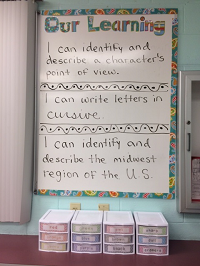 Our Learning
I can identify and
describe a character's
point of view.
I can write letters in
cursive.
I can identify and
describe the midwest
region of the U.S.